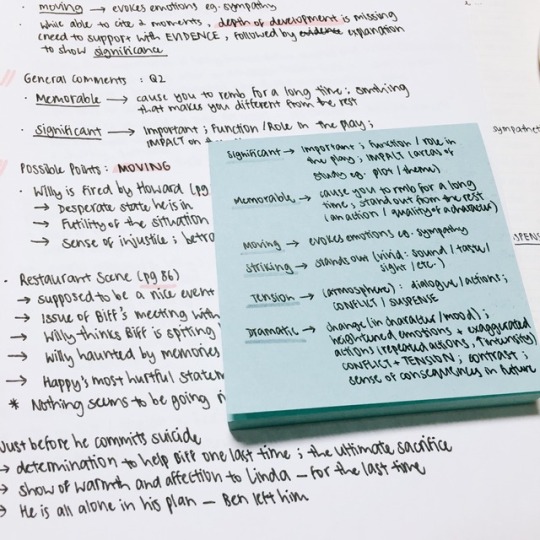 · moving → evokes emotions eg. sympathy
· while able to cite 2 moments, depth of development is missing
(need to support with EVIDENCE, followed by evidence explanation
to show significance
General comments : Q2
· Memorable → cause you to remb for a long time ; smthing
that makes you different from the rest
· Significant → Important ; Function / Role in the play ;
IMPACT on
sympathet
Possible Points : MOVING
· Willy is fired by Howard (pg
→ Desperate state he is in
→ Futility of the situation
→ Sense of injustice ; betra
SPENS
· Restaurant Scene (pg 86)
→ supposed to be a nice event
→ Issue of Biff's meeting with
→ Willy thinks Biff is spiting
→ Willy haunted by memories
→ Happy's most hurtful statem
* Nothing seems to be going
Just before he commits suicide
→ determination to help Biff one last time ; the ultimate sacrifice
→ show of warmth and affection to Linda – for the last time
→ He is all alone in his plan – Ben left him
significant → Important ; function / role in
the play ; IMPACT (areas of
study eg. plot / theme)
Memorable → cause you to rmb for a long
time ; stand out from the rest
(an action / quality of a character)
Moving → evokes emotions eg. sympathy
striking → stands out (vivid : sound / taste /
sight / etc.)
Tension → (atmosphere) : dialogue / actions ;
CONFLICT / SUSPENSE
Dramatic → change (in character / mood) ;
heightened emotions + exaggerated
actions (repeated actions, ↑ intensity)
CONFLICT + TENSION ; contrast ;
sense of consequences in future